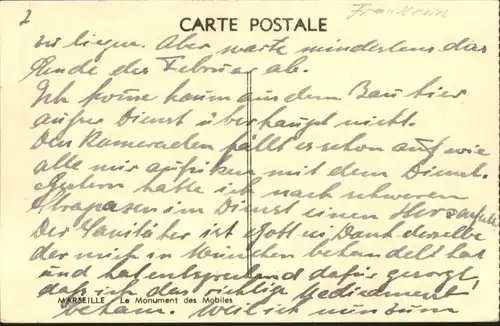 2
CARTE POSTALE
Frankreich
zu liegen. Aber warte mindestens das
Ende des Februar ab.
Ich komme kaum aus dem Bau hier
außer Dienst überhaupt nicht.
Den Kameraden fällt es schon auf wie
alle mir aufsitzen mit dem Dienst.
Gestern hatte ich nach schweren
Strapazen im Dienst einen Herzanfall
Der Sanitäter ist Gott sei Dank derselbe
der mich in München behandelt hat
und hat entsprechend dafür gesorgt
daß ich das richtige Medicament
MARSEILLE - Le Monument des Mobiles
bekam. Weil ich nun zum